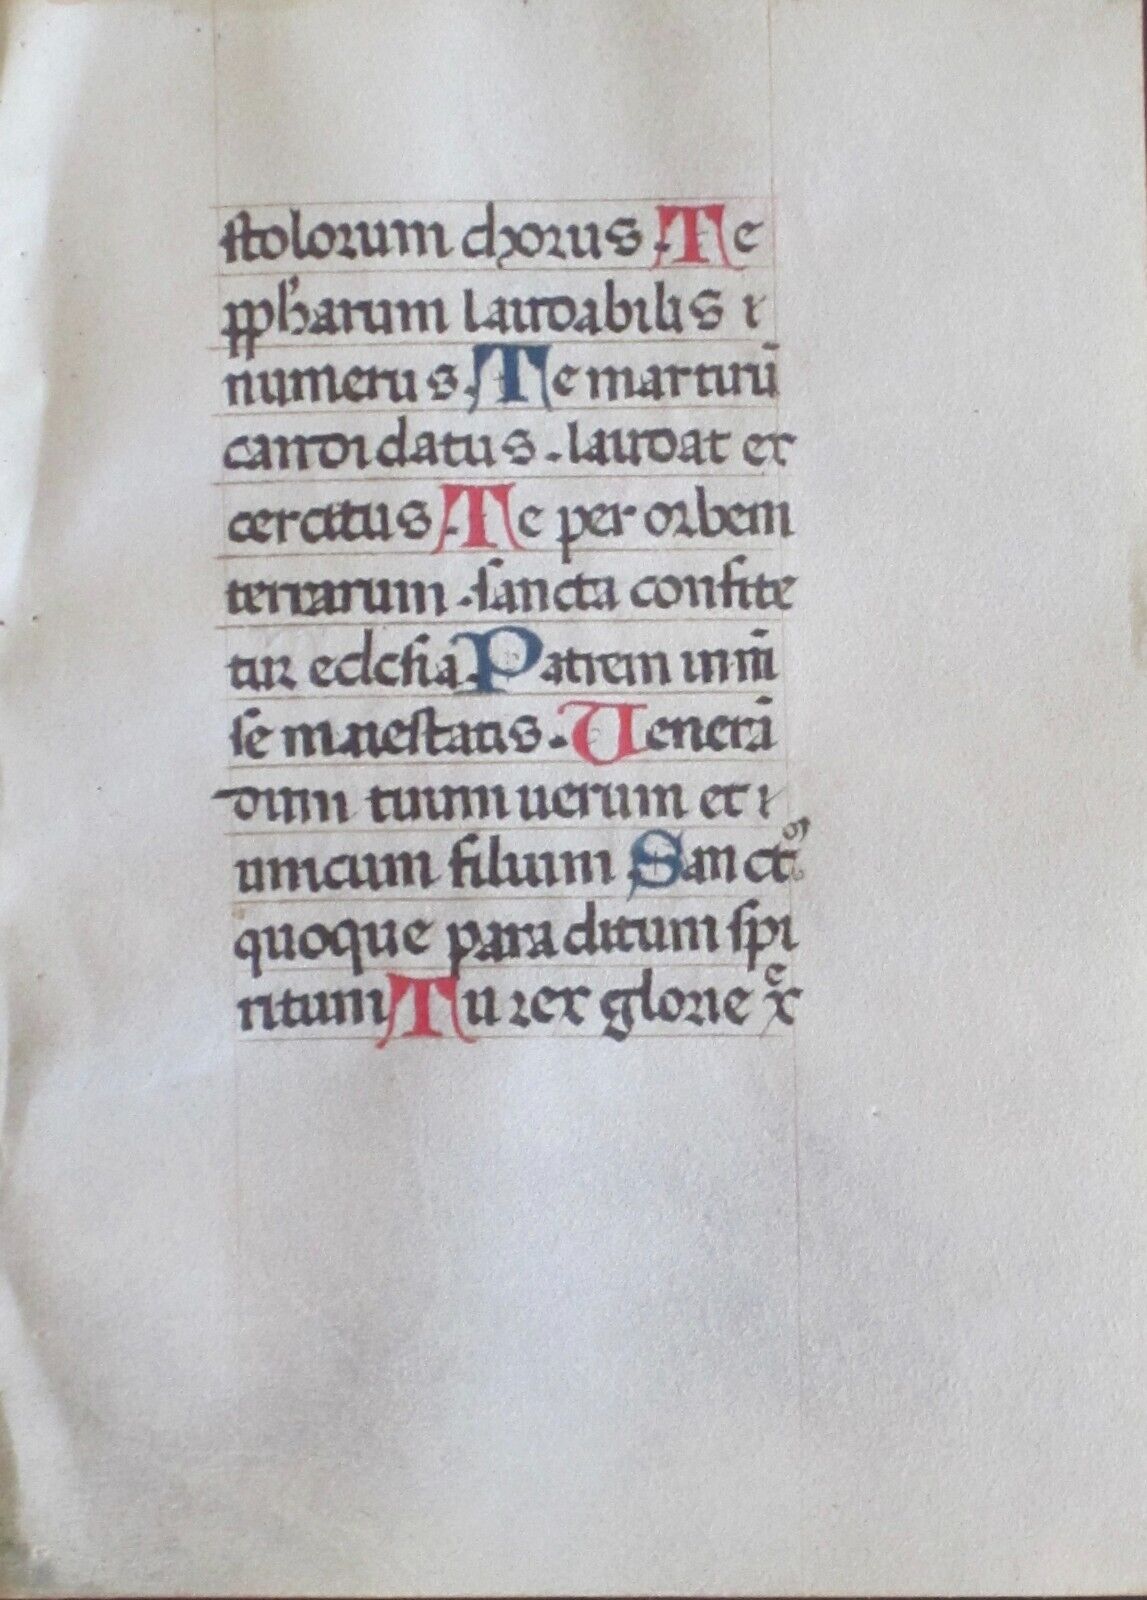 stolorum chorus. Te
pph̄arum laudabilis ⁊
numerus. Te martirū
candidatus. laudat ex
cercitus. Te per orbem
terrarum. sancta confite
tur ecclesia. Patrem inm̄
se maiestatis. Venerā
dum tuum uerum et ⁊
unicum filium Sanctū
quoque paraclitum spi
ritum Tu rex glorie xͤ